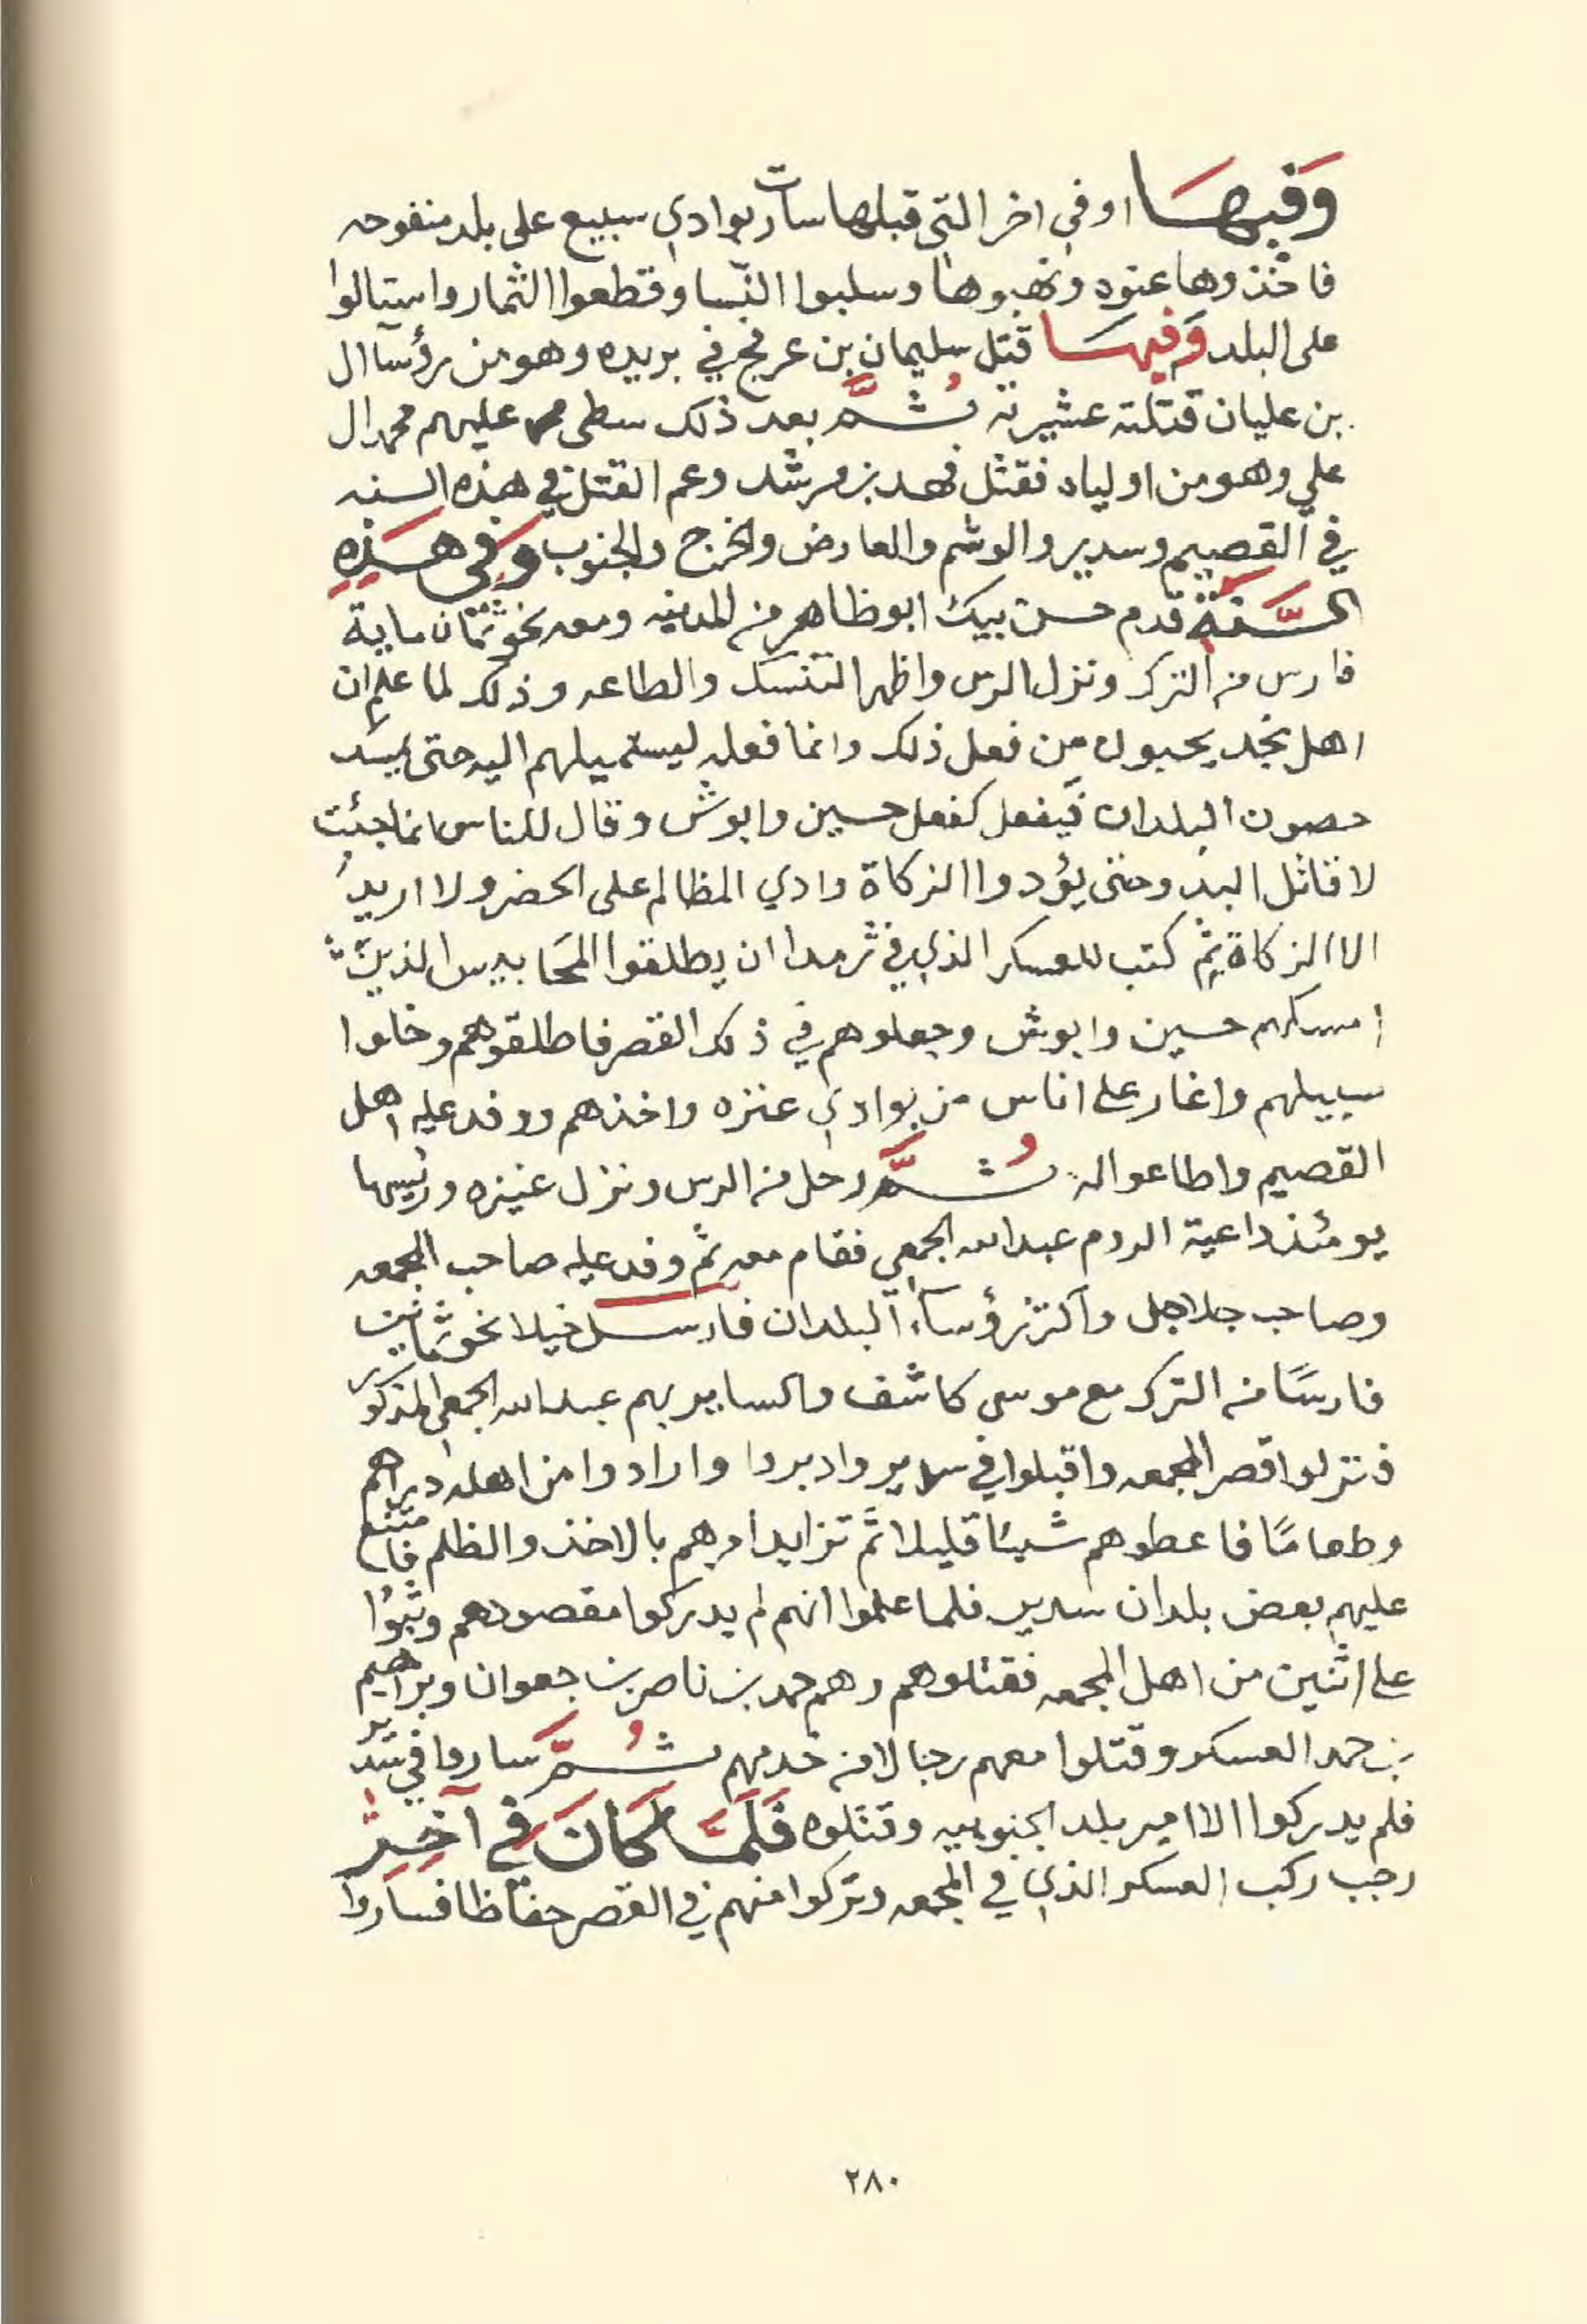 وَفيهَا اوفي اخر التي قبلها سارت بوادي سبيع على بلد منفوحه
فاخذوها عنوه ونهبوها وسلبوا النسا وقطعوا الثمار واستالوا
على البلد وَفيهَا قتل سليمان بن عرفج في بريده وهو من رؤسآ ال
بن عليان قتلته عشيرته ثُمَّ بعد ذلك سطى عليهم محمد ال
علي وهو من اولياه فقتل فهد بن مرشد وعم القتل في هذه السنه
في القصيم وسدير والوشم والعارض والخرج والجنوب وَفي هَذِهِ
السَّنَةِ قدم حسن بيك ابو ظاهر من المدينه ومعه نحو ثمان ماية
فارس من الترك ونزل الرس واظهر التنسك والطاعه وذلك لما علم ان
اهل نجد يحبون من فعل ذلك وانما فعله ليستميلهم اليه حتى يسد
حصون البلدان فيفعل كفعل حسين وابوش وقال للناس انما جئت
لاقاتل البدو حتى يؤدوا الزكاة وادي المظالم على الحضر ولا اريد
الا الزكاة ثم كتب للعسكر الذي في ثرمدا ان يطلقوا المحَابيس الذين
امسكهم حسين وابوش وجعلوهم في ذلك القصر فاطلقوهم وخلوا
سبيلهم واغار على اناس من بوادي عنزه واخذهم ووفد عليه اهل
القصيم واطاعوا له ثُمَّ رحل من الرس ونزل عنيزه ورئيسها
يومئذ داعية الروم عبدالله الجمعي فقام معه ثم وفد عليه صاحب المجمعه
وصاحب جلاجل واكثر رؤسآء البلدان فارسل خيلا نحو ثمانين
فارسًا من الترك مع موسى كاشف والساير بهم عبدالله الجمعي المذكور
فنزلوا قصر المجمعه واقبلوا في سدير وادبروا وارادوا من اهله دراهم
وطعامًا فاعطوهم شيئا قليلا ثم تزايد امرهم بالاخذ والظلم فامتنع
عليهم بعض بلدان سدير فلما علموا انهم لم يدركوا مقصودهم وثبوا
على اثنين من اهل المجمعه فقتلوهم وهم حمد بن ناصر بن جعوان وبراهيم
بن حمد العسكر وقتلوا معهم رجالا من خدمهم ثُمَّ ساروا في سدير
فلم يدركوا الا امير بلد الجنوبيه وقتلوه فَلَمَّا كَانَ في آخِرِ
رجب ركب العسكر الذي في المجمعه وتركوا منهم في القصر حفاظا فساروا
٢٨٠